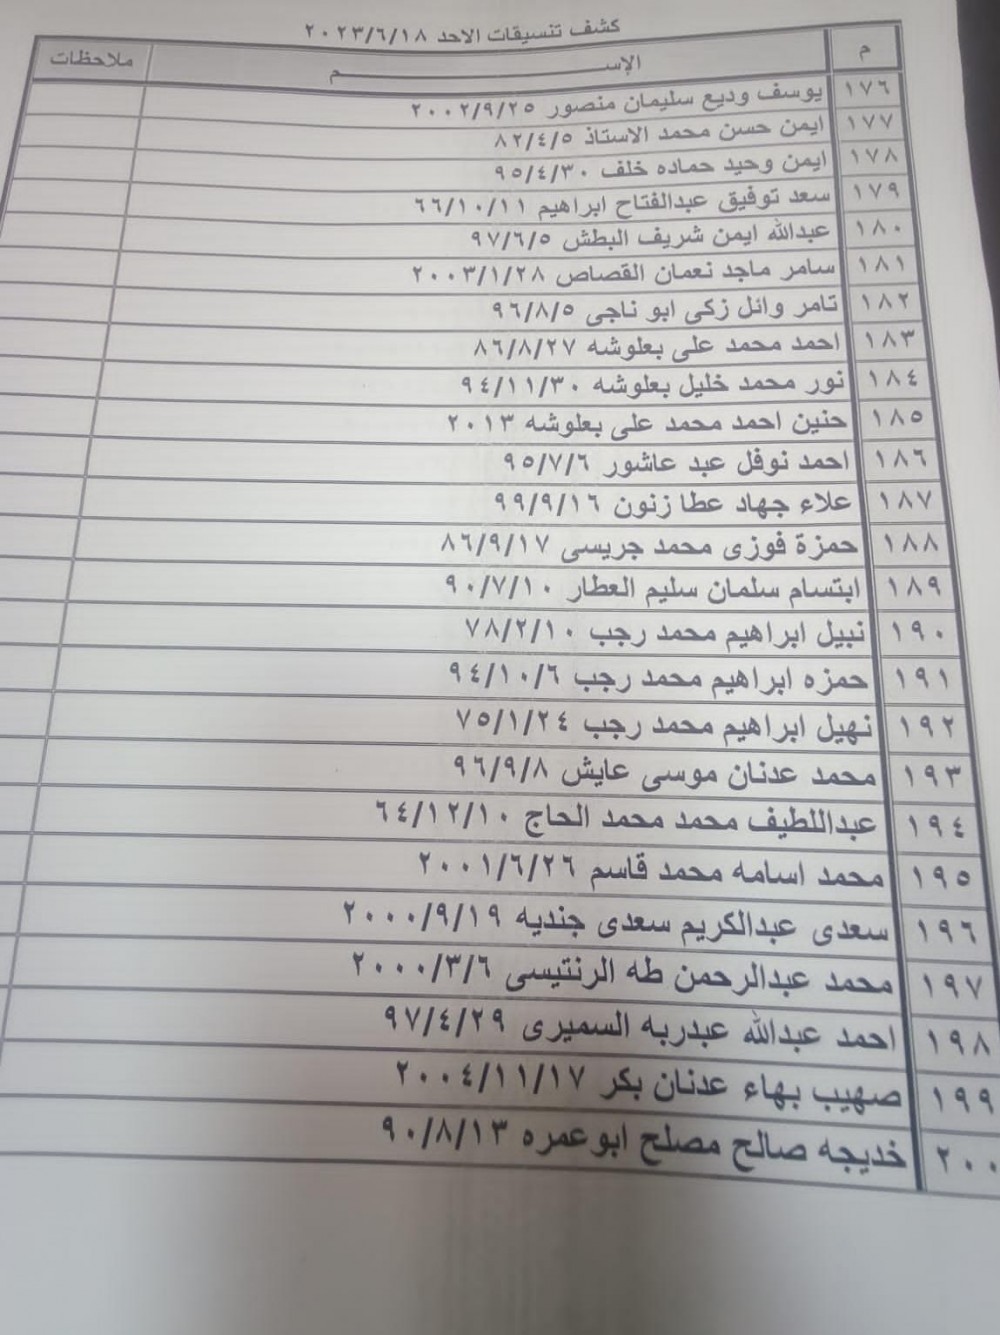 كشف تنسيقات الاحد ٢٠٢٣/٦/١٨
م الإســــــم ملاحظات
١٧٦ يوسف وديع سليمان منصور ٢٠٠٢/٩/٢٥
١٧٧ ايمن حسن محمد الاستاذ ٨٢/٤/٥
١٧٨ ايمن وحيد حماده خلف ٩٥/٤/٣٠
١٧٩ سعد توفيق عبدالفتاح ابراهيم ٦٦/١٠/١١
١٨٠ عبدالله ايمن شريف البطش ٩٧/٦/٥
١٨١ سامر ماجد نعمان القصاص ٢٠٠٣/١/٢٨
١٨٢ تامر وائل زكى ابو ناجى ٩٦/٨/٥
١٨٣ احمد محمد على بعلوشه ٨٦/٨/٢٧
١٨٤ نور محمد خليل بعلوشه ٩٤/١١/٣٠
١٨٥ حنين احمد محمد على بعلوشه ٢٠١٣
١٨٦ احمد نوفل عبد عاشور ٩٥/٧/٦
١٨٧ علاء جهاد عطا زنون ٩٩/٩/١٦
١٨٨ حمزة فوزى محمد جريسى ٨٦/٩/١٧
١٨٩ ابتسام سلمان سليم العطار ٩٠/٧/١٠
١٩٠ نبيل ابراهيم محمد رجب ٧٨/٢/١٠
١٩١ حمزه ابراهيم محمد رجب ٩٤/١٠/٦
١٩٢ نهيل ابراهيم محمد رجب ٧٥/١/٢٤
١٩٣ محمد عدنان موسى عايش ٩٦/٩/٨
١٩٤ عبداللطيف محمد محمد الحاج ٦٤/١٢/١٠
١٩٥ محمد اسامه محمد قاسم ٢٠٠١/٦/٢٦
١٩٦ سعدى عبدالكريم سعدى جنديه ٢٠٠٠/٩/١٩
١٩٧ محمد عبدالرحمن طه الرنتيسى ٢٠٠٠/٣/٦
١٩٨ احمد عبدالله عبدربه السميرى ٩٧/٤/٢٩
١٩٩ صهيب بهاء عدنان بكر ٢٠٠٤/١١/١٧
٢٠٠ خديجه صالح مصلح ابوعمره ٩٠/٨/١٣